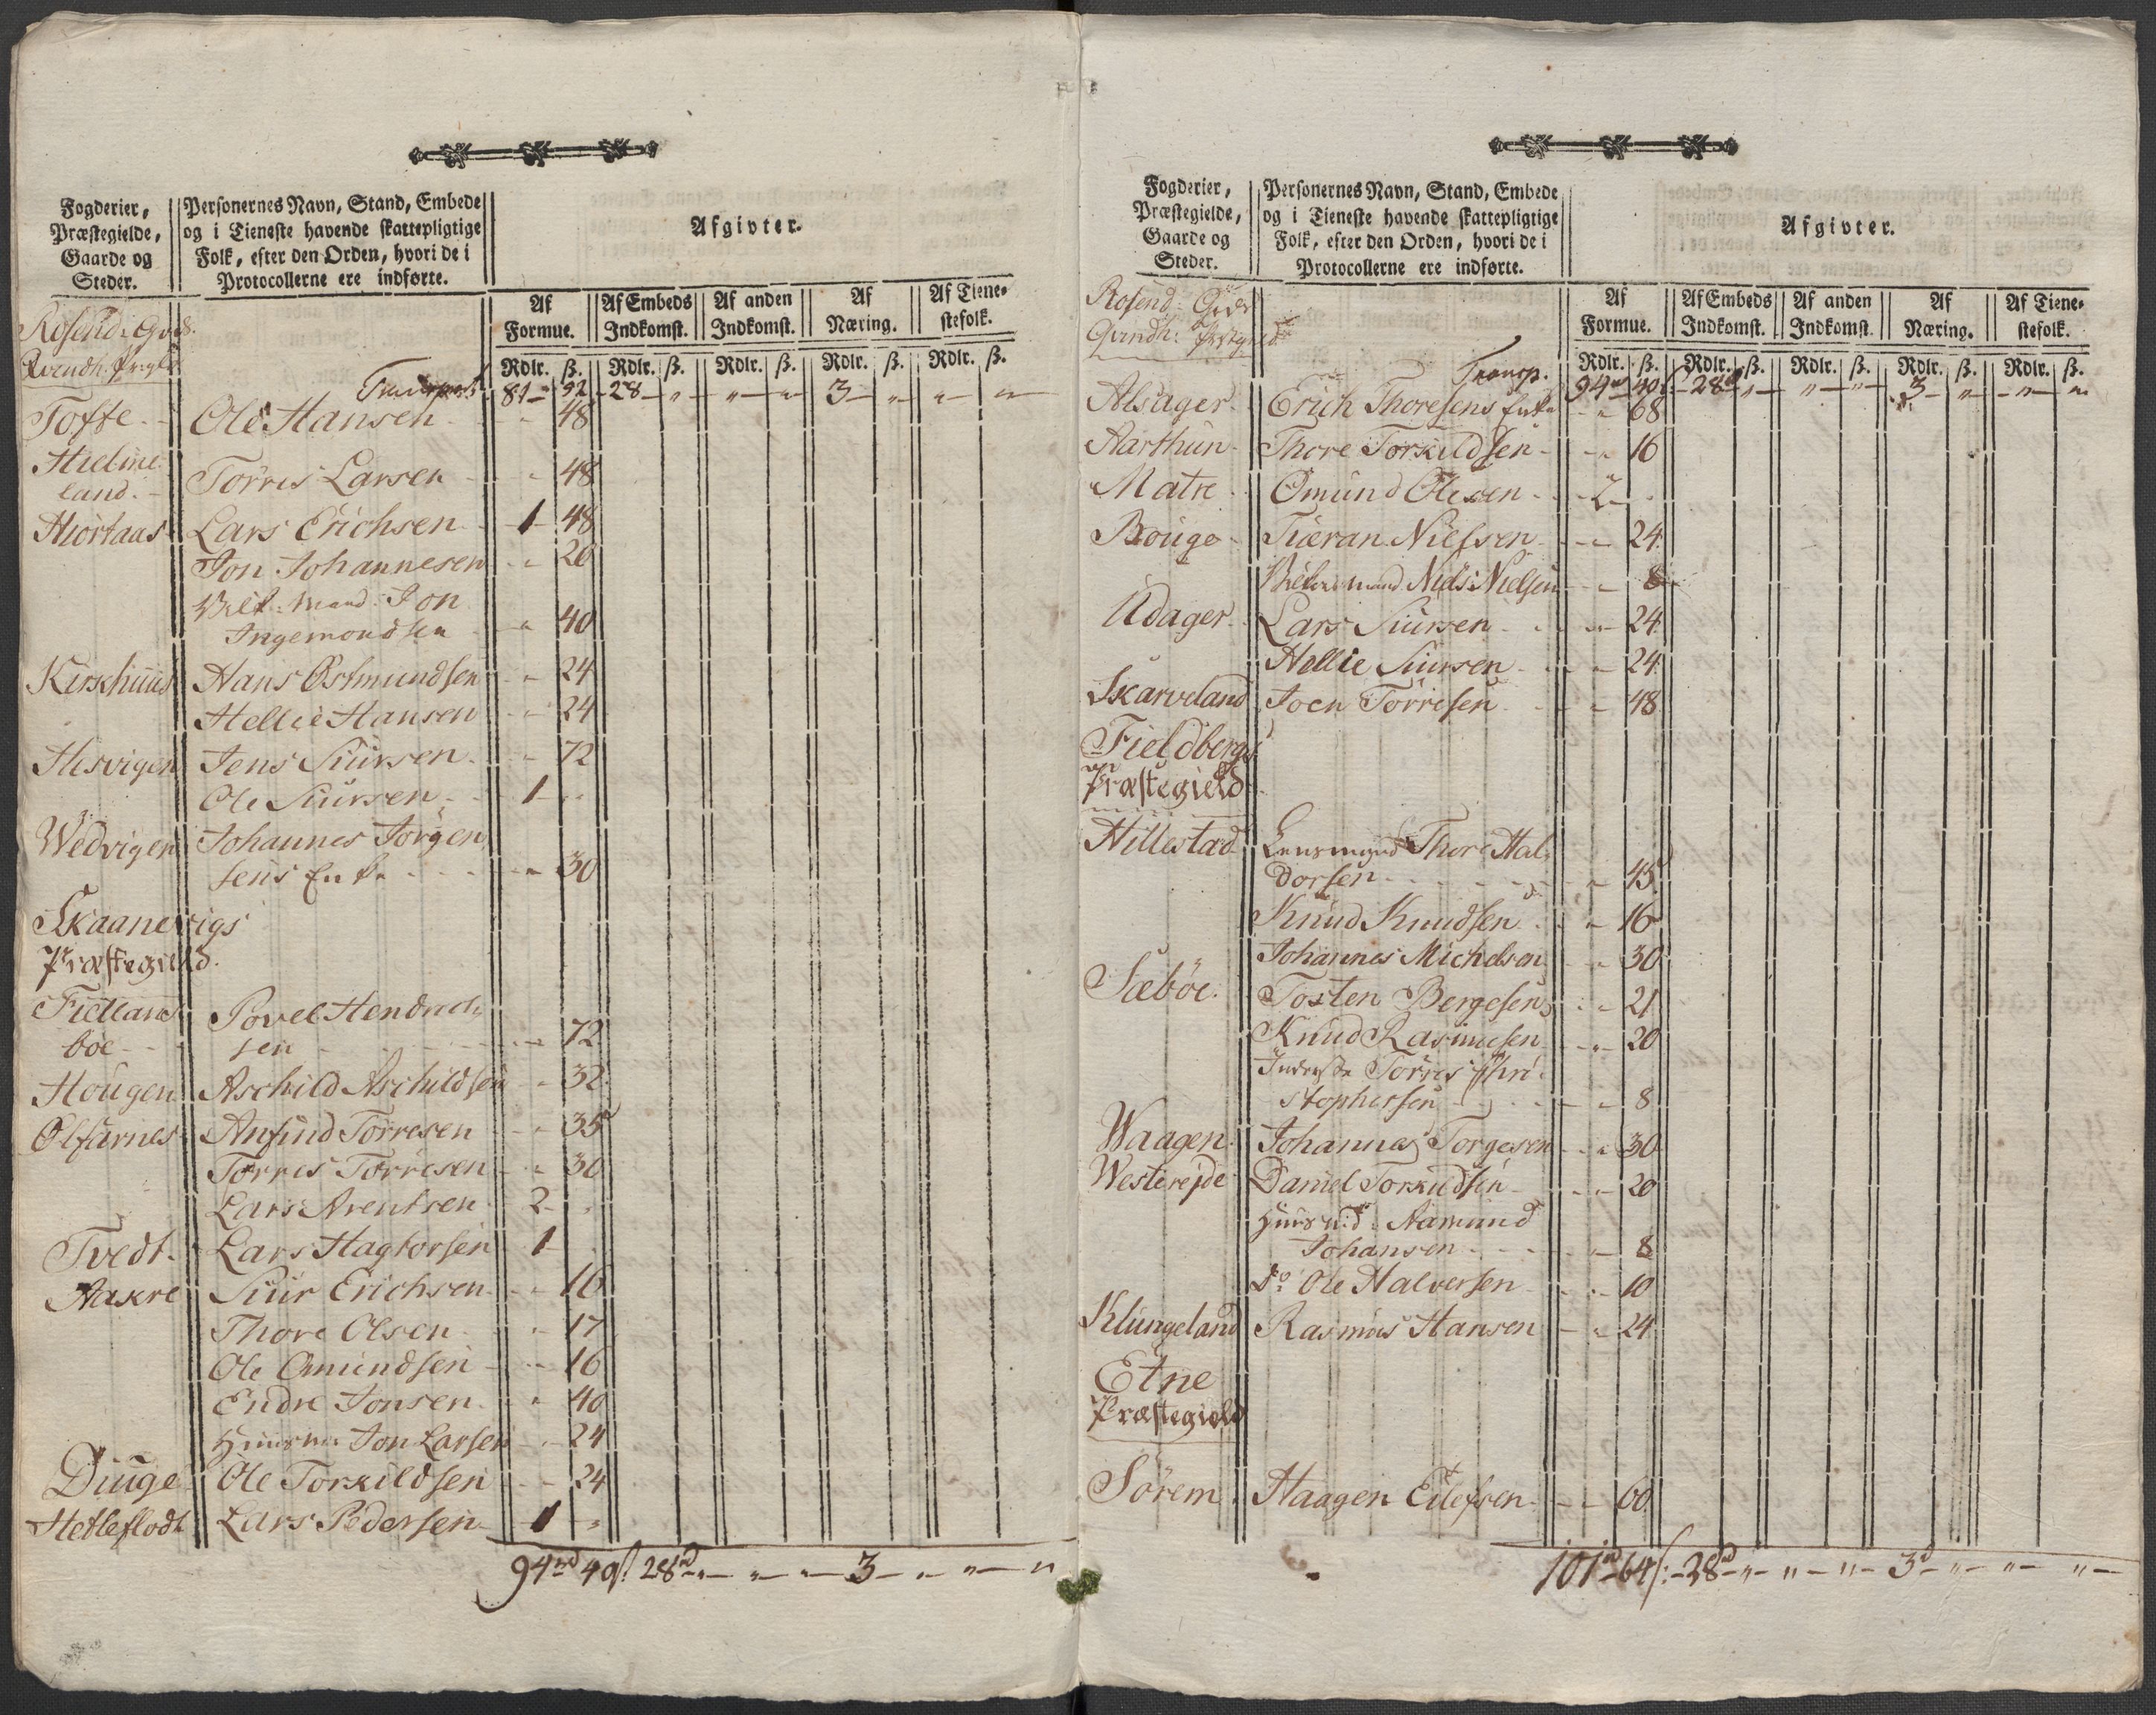 Fogderier,
Præstegielde,
Gaarde og
Steder.
Personernes Navn, Stand, Embede
og i Tieneste havende skattepligtige
Folk, efter den Orden, hvori de i
Protocollerne ere indførte.
Afgivter.
Af Formue. Af Embeds Indkomst. Af anden Indkomst. Af Næring. Af Tiene-stefolk.
Rdlr. ß. Rdlr. ß. Rdlr. ß. Rdlr. ß. Rdlr. ß.
Rosend: Gods.
Qvindh: Prgld
Transport 81 - 92 - 28 - " - " - " - 3 - " - " - "
Tofte - Ole Hansen - " 48
Hielme-
land. - Törres Larsen - " 48
Hiortaas Lars Erichsen - 1 - 48
Jon Johannesen - " 20
Mand: Jon
Ingemondsen - " 40
Kirkhuus Hans Østmundsen - " 24
Hellie Hansen - " 24
Hisvigen Jens Siursen - " 72
Ole Siursen - 1 - "
Wedvigen Johannes Jörgen
sens Enke - - - " 30
Skaanevigs
Præstegield.
Fielland
böe - - Povel Hendrich
sen - - - " 72
Hougen Aschild Aschildsen - " 32
Ølfarnes Anfind Törresen - " 35
Torres Törresen - " 30
Lars Arentsen 2 - "
Tvedt - Lars Hagtorsen 1 -
Aakre Siur Erichsen - " 16
Thore Olsen - " 17
Ole Omundsen - " 16
Endre Jonsen - " 40
Huusm: Jon Larsen - " 24
Diuge Ole Torkildsen - " 24
Hetleflodt Lars Pedersen - 1 - "
94rd 40ß. 28rd - " - " - " - 3 - " - " - "
Fogderier,
Præstegielde,
Gaarde og
Steder.
Personernes Navn, Stand, Embede
og i Tieneste havende skattepligtige
Folk, efter den Orden, hvori de i
Protocollerne ere indførte.
Afgivter.
Af Formue. Af Embeds Indkomst. Af anden Indkomst. Af Næring. Af Tiene-stefolk.
Rdlr. ß. Rdlr. ß. Rdlr. ß. Rdlr. ß. Rdlr. ß.
Rosend: Gods
Qvindh: Prstgield
Transp. 94rd 40ß - 28rd " - " - " - 3 - " - " - "
Alsager. Erich Thoresens Enke - " 68
Aarthun - Thore Torkildsen - " 16
Matre - Omund Olesen - 2 -
Bouge - Tieran Nielsen - " 24.
Niels Nielsen - " 8
Udager - Lars Siursen - " 24.
Hellie Siursen - " 24.
Skarveland Joen Törresen - " 48
Fieldbergs
Præstegield.
Hillestad Lensmand Thore Hal-
dorsen - - " 45.
Knud Knudsen - " 16
Johannes Michelsen - " 30
Sæböe. Tosten Bergesen - " 21
Knud Rasmusen - " 20
Inderste Torris Chri-
stophersen - " 8
Waagen. Johannes Torgesen - " 30
Westereide Daniel Torkildsen - " 20
Huusmd: Aamund
Johansen - - " 8
Do Ole Halversen - " 10
Klungeland Rasmus Hansen - " 24
Etne
Præstegield
Sörem. Haagen Eilefsen - " 60
101rd - 64ß: - 28rd - " - " - " - 3d - " - " - " -